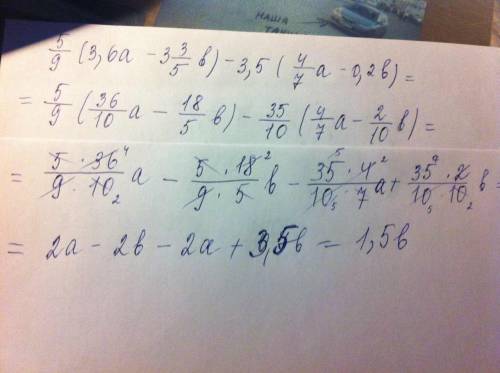 НАША
5/9 (3,6a - 3 3/5 в) - 3,5 ( 4/7 a - 0,2в) =
= 5/9 ( 36/10 a - 18/5 в) - 35/10 ( 4/7 a - 2/10 в) =
= 5 · 36 4 / 9 · 10 2 a - 5 · 18 2 / 9 · 5 в - 35 5 · 4 2 / 10 5 · 7 a + 35 · 2 / 10 5 · 10 2 в =
= 2a - 2в - 2a + 3,5в = 1,5в